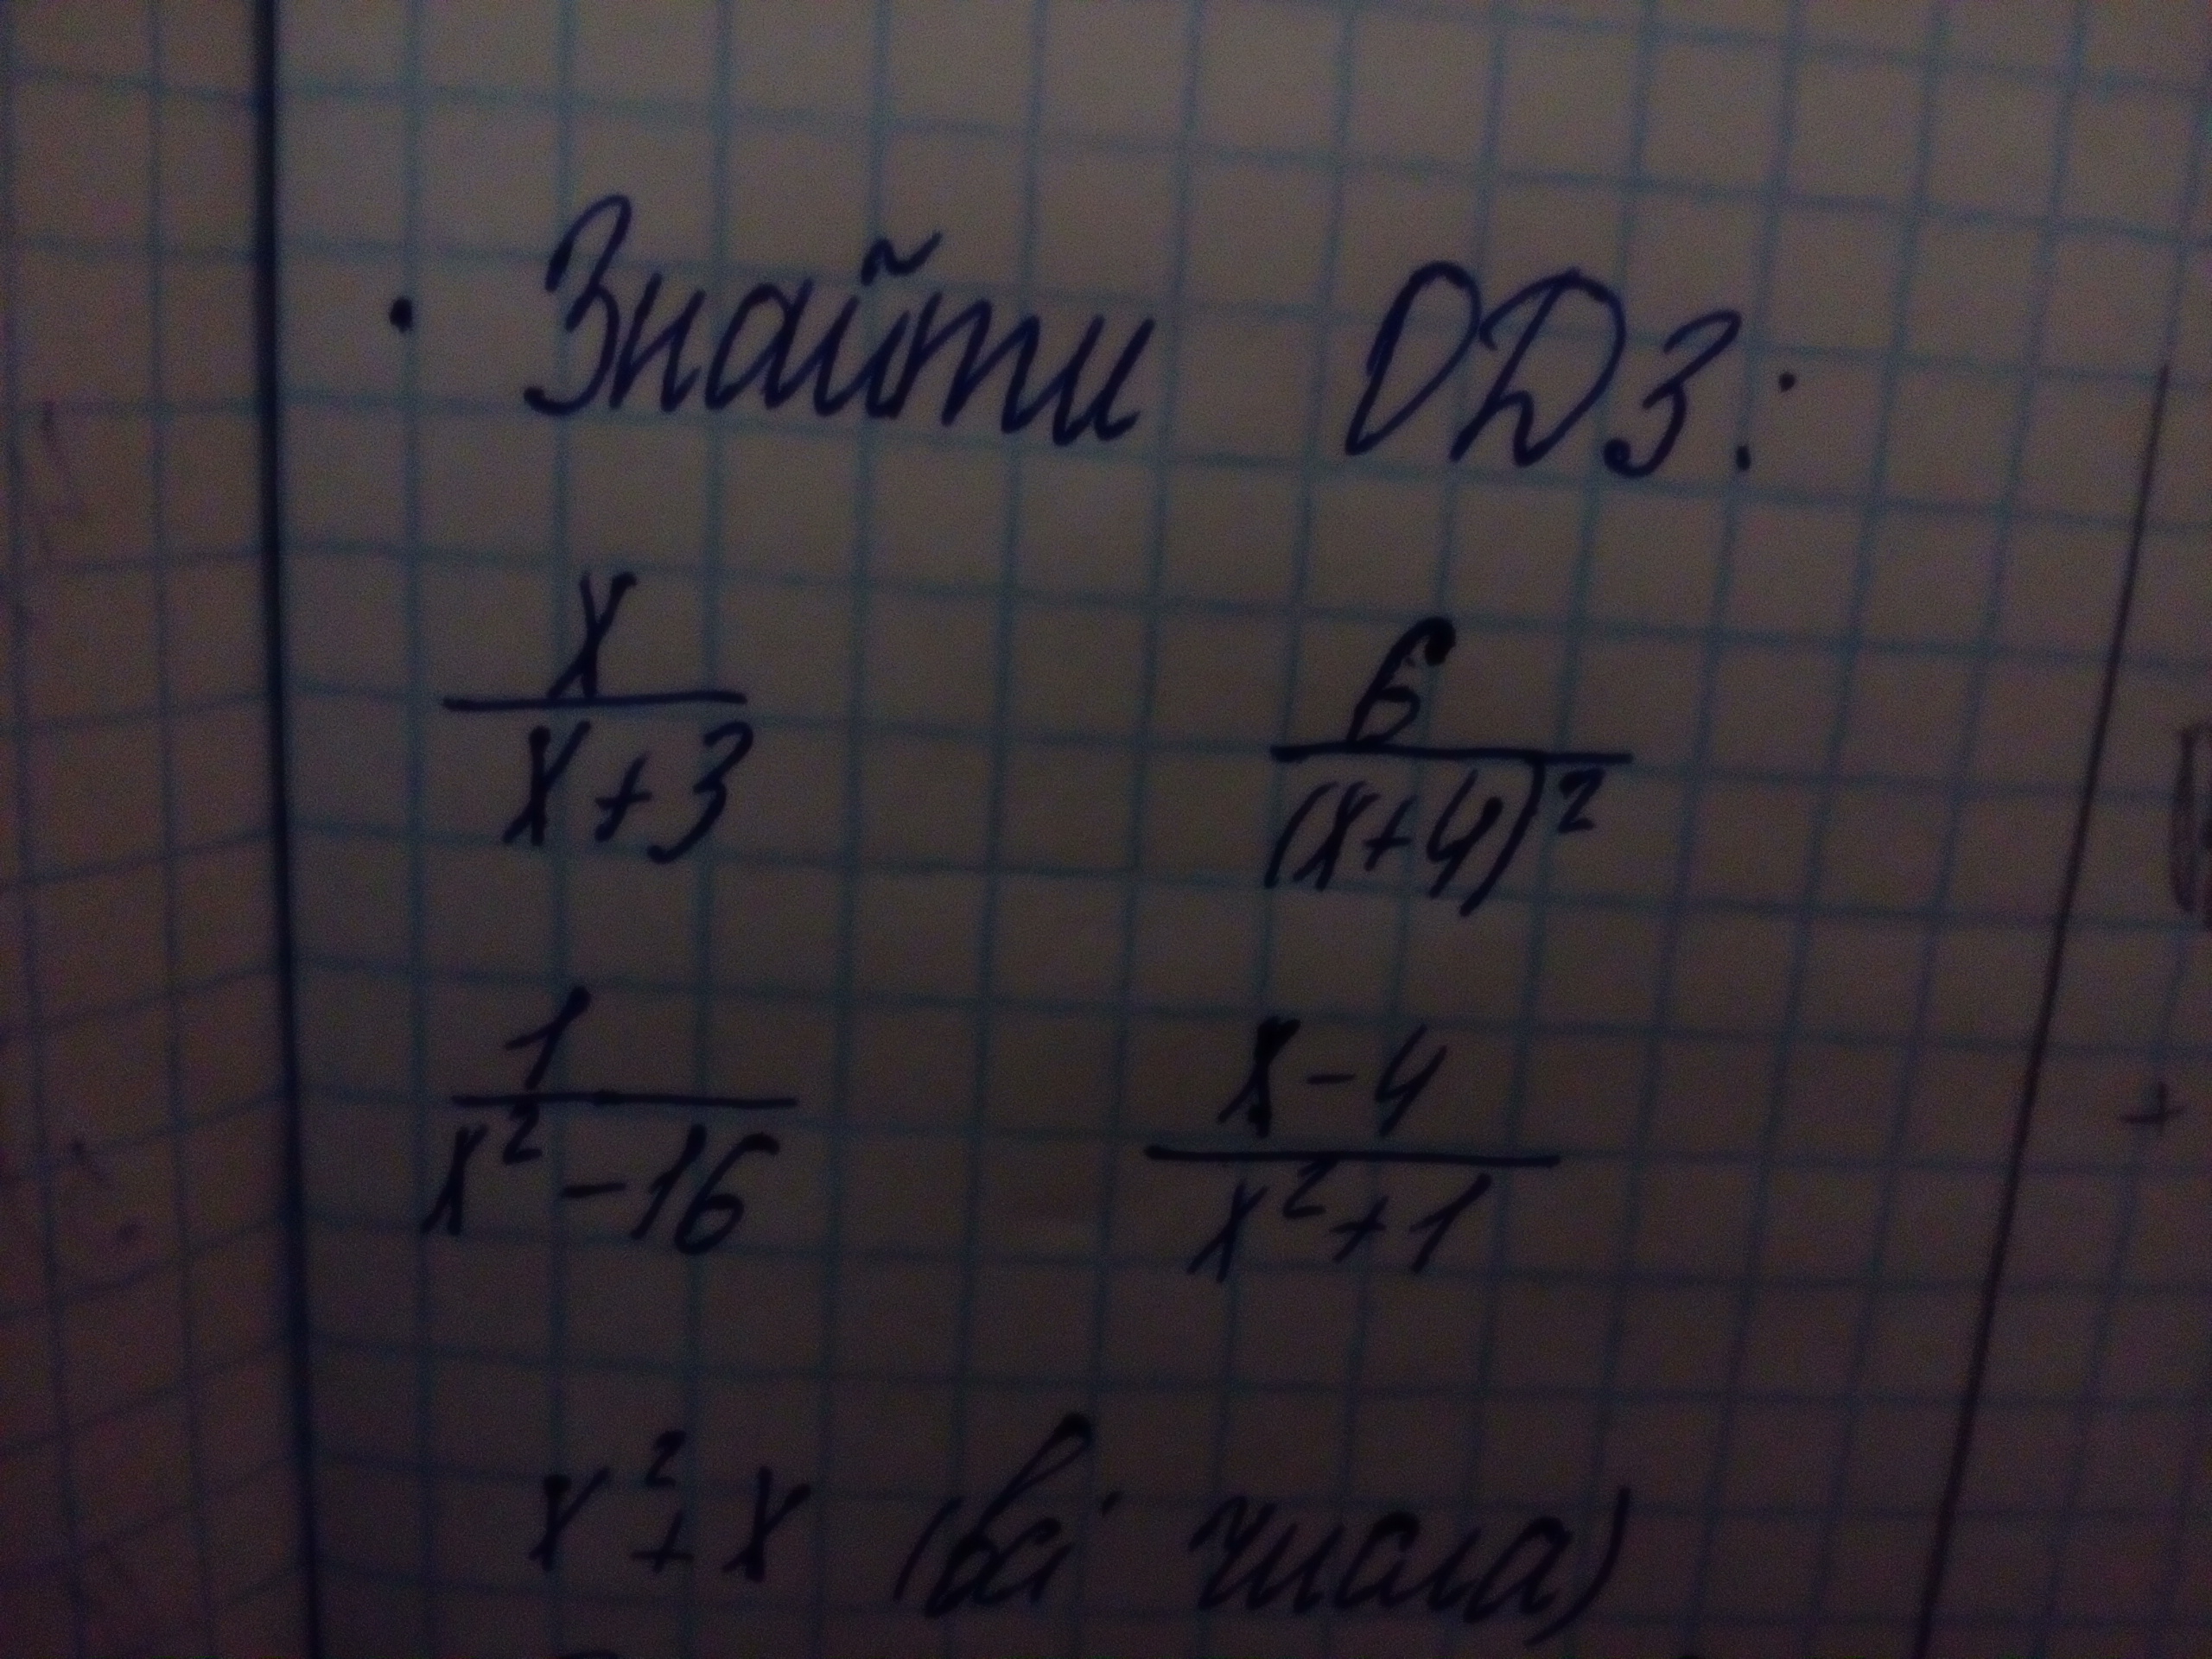 · Знайти ОДЗ:
x/(x+3) 6/(x+4)²
1/(x²-16) (x-4)/(x²+1)
x²+x (всі числа)